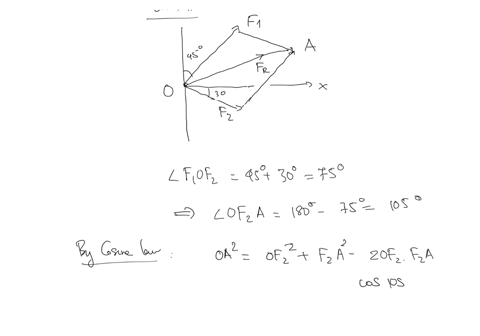 F1
A
45°
FR
O
30
x
F2
∠F1OF2 = 45° + 30° = 75°
⇒ ∠OF2A = 180° - 75° = 105°
By Cosine law : OA² = OF2² + F2A² - 2OF2 . F2A
cos 105